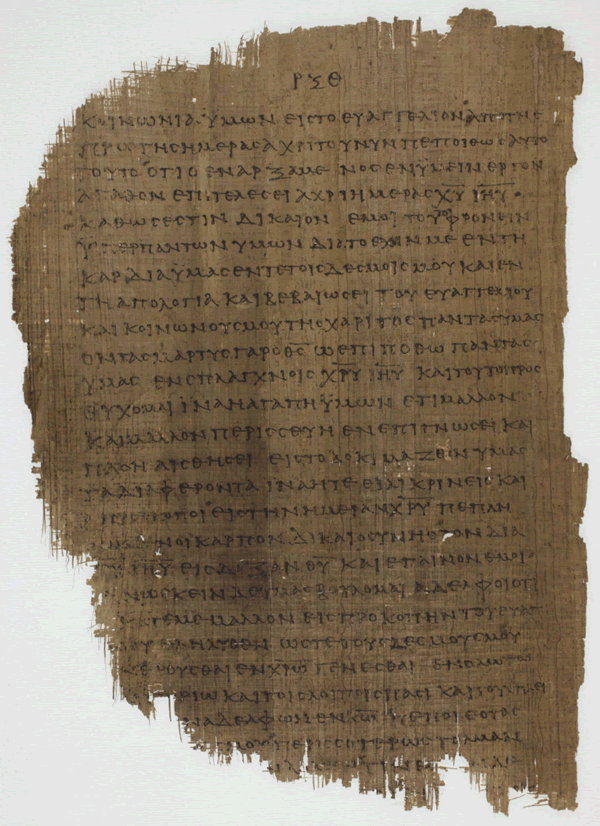 ΡΞΘ
ΚΟΙΝΩΝΙΑ ΫΜΩΝ ΕΙϹ ΤΟ ΕΥΑΓΓΕΛΙΟΝ ΑΠΟ ΤΗϹ
ΠΡΩΤΗϹ ΗΜΕΡΑϹ ΑΧΡΙ ΤΟΥ ΝΥΝ ΠΕΠΟΙΘΩϹ ΑΥΤΟ
ΤΟΥΤΟ ΟΤΙ Ο ΕΝΑΡΞΑΜΕΝΟϹ ΕΝ ΫΜΕΙΝ ΕΡΓΟΝ
ΑΓΑΘΟΝ ΕΠΙΤΕΛΕϹΕΙ ΑΧΡΙ ΗΜΕΡΑϹ Χ̅Υ̅ Ι̅Η̅Υ̅
ΚΑΘΩϹ ΕϹΤΙΝ ΔΙΚΑΙΟΝ ΕΜΟΙ ΦΡΟΝΕΙΝ
ΫΠΕΡ ΠΑΝΤΩΝ ΥΜΩΝ ΔΙΑ ΤΟ ΜΕ ΕΝ ΤΗ
ΚΑΡΔΙΑ ΫΜΑϹ ΕΝ ΤΕ ΤΟΙϹ ΔΕϹΜΟΙϹ ΜΟΥ ΚΑΙ ΕΝ
ΤΗ ΑΠΟΛΟΓΙΑ ΚΑΙ ΒΕΒΑΙΩϹΕΙ ΤΟΥ ΕΥΑΓΓΕΛΙΟΥ
ΚΑΙ ΚΟΙΝΩΝΟΥϹ ΜΟΥ ΤΗϹ ΧΑΡΙΤΟϹ ΠΑΝΤΑϹ ΥΜΑϹ
ΟΝΤΑϹ ΜΑΡΤΥϹ ΓΑΡ Ο Θ̅Ϲ̅ ΩϹ ΕΠΙΠΟΘΩ ΠΑΝΤΑϹ
ΥΜΑϹ ΕΝ ϹΠΛΑΓΧΝΟΙϹ Χ̅Ρ̅Υ̅ Ι̅Η̅Υ̅ ΚΑΙ ΤΟΥΤΟ ΠΡΟϹ
ΕΥΧΟΜΑΙ ΙΝΑ Η ΑΓΑΠΗ ΫΜΩΝ ΕΤΙ ΜΑΛΛΟΝ
ΚΑΙ ΜΑΛΛΟΝ ΠΕΡΙϹϹΕΥΗ ΕΝ ΕΠΙΓΝΩϹΕΙ ΚΑΙ
ΑΙϹΘΗϹΕΙ ΕΙϹ ΤΟ ΔΟΚΙΜΑΖΕΙΝ ΥΜΑϹ
ΤΑ ΔΙΑΦΕΡΟΝΤΑ ΙΝΑ ΗΤΕ ΚΑΙ
ΕΙϹ ΤΗΝ ΗΜΕΡΑΝ Χ̅Ρ̅Υ̅ ΠΕΠΛΗ
ΚΑΡΠΟΝ ΔΙΚΑΙΟϹΥΝΗϹ ΤΟΝ ΔΙΑ
ΕΙϹ ΔΟΞΑΝ Θ̅Υ̅ ΚΑΙ ΕΠΑΙΝΟΝ ΕΜΟΙ
ΓΕΙΝΩϹΚΕΙΝ ΔΕ ΥΜΑϹ ΒΟΥΛΟΜΑΙ ΑΔΕΛΦΟΙ ΟΤΙ
ΚΑΤ ΕΜΕ ΜΑΛΛΟΝ ΕΙϹ ΠΡΟΚΟΠΗΝ ΤΟΥ ΕΥΑΓ
ΕΛΗΛΥΘΕΝ ΩϹΤΕ ΤΟΥϹ ΔΕϹΜΟΥϹ ΜΟΥ
ΓΕΝΕϹΘΑΙ ΕΝ ΟΛΩ
ΚΑΙ ΤΟΙϹ ΛΟΙΠΟΙϹ ΠΑϹΙ ΚΑΙ ΤΟΥϹ
ΑΔΕΛΦΩΝ ΕΝ Κ̅Ω̅
ΜΟΥ ΠΕΡΙϹϹΟΤΕΡΩϹ ΤΟΛΜΑΝ